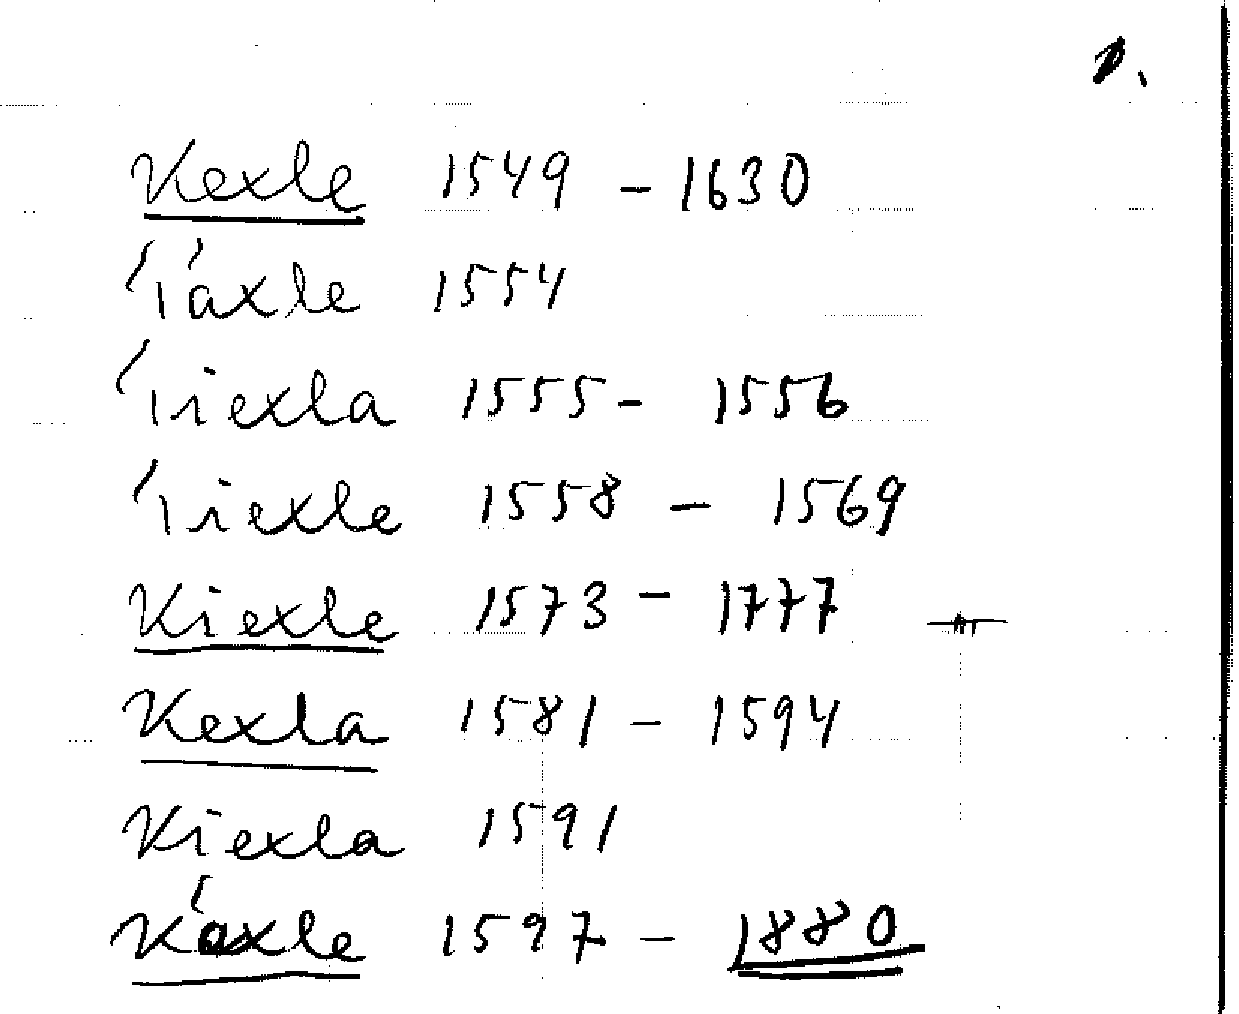 Kexle 1549 - 1630
'Táxle 1554
'Tiexla 1555 - 1556
'Tiexle 1558 - 1569
Kiexle 1573 - 1777
Kexla 1581 - 1594
Kiexla 1591
Káxle 1597 - 1880